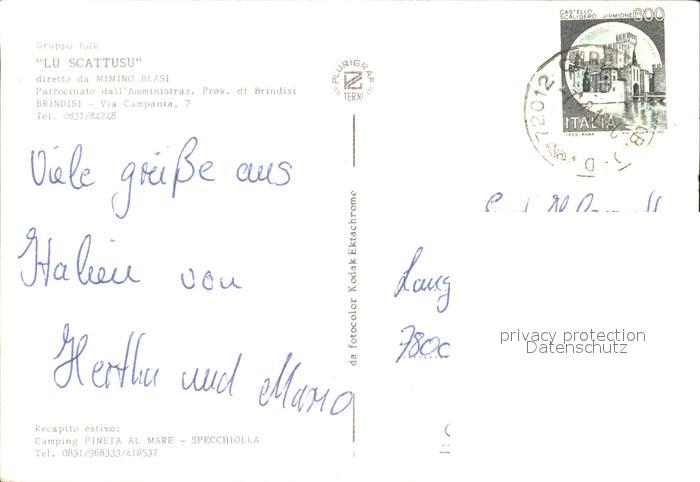 Gruppo folk
"LU SCATTUSU"
diretto da MIMINO BLASI
Patrocinato dall'Amministraz. Prov. di Brindisi
BRINDISI - Via Campania, 7
Tel. 0831/84248
Viele grüße aus
Italien von
Hertha und Mario
Recapito estivo:
Camping PINETA AL MARE - SPECCHIOLLA
Tel. 0831/968333/418537
PLURIGRAF
TERNI
da fotocolor Kodak Ektachrome
CASTELLO
SCALIGERO SIRMIONE 600
ITALIA
I.P.Z.S. ROMA
72012
Lang
7800
privacy protection
Datenschutz